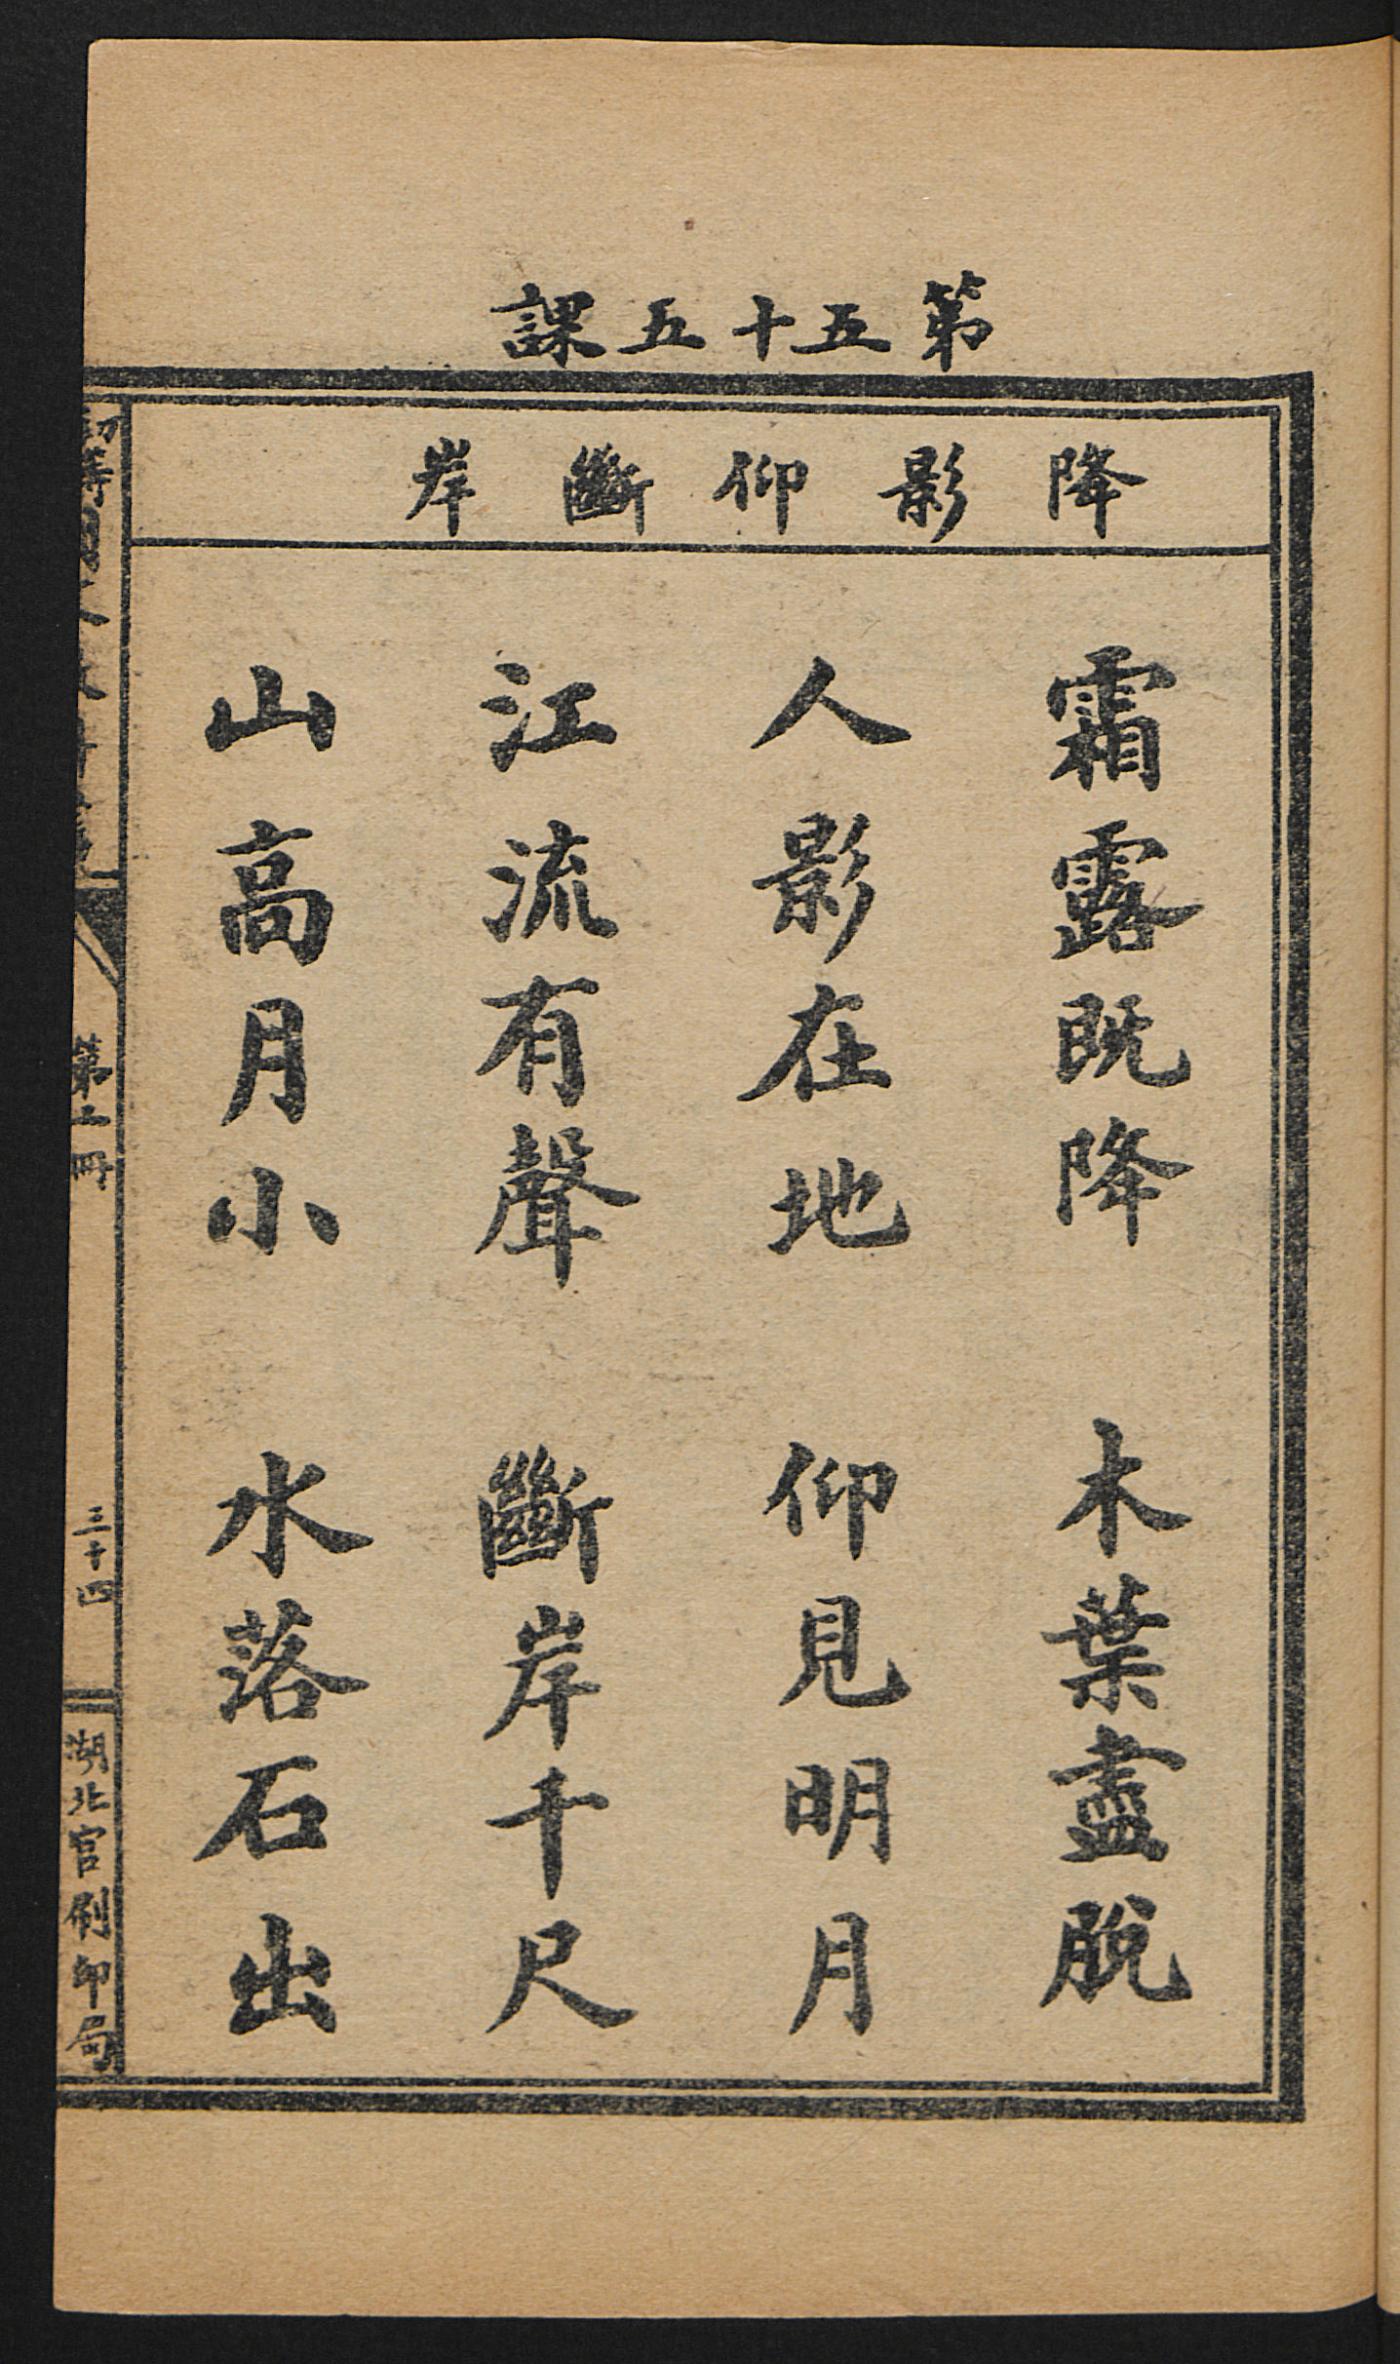 第五十五課
降影仰斷岸
霜露既降　木葉盡脫
人影在地　仰見明月
江流有聲　斷岸千尺
山高月小　水落石出
第上冊
三十四
湖北官刷印局